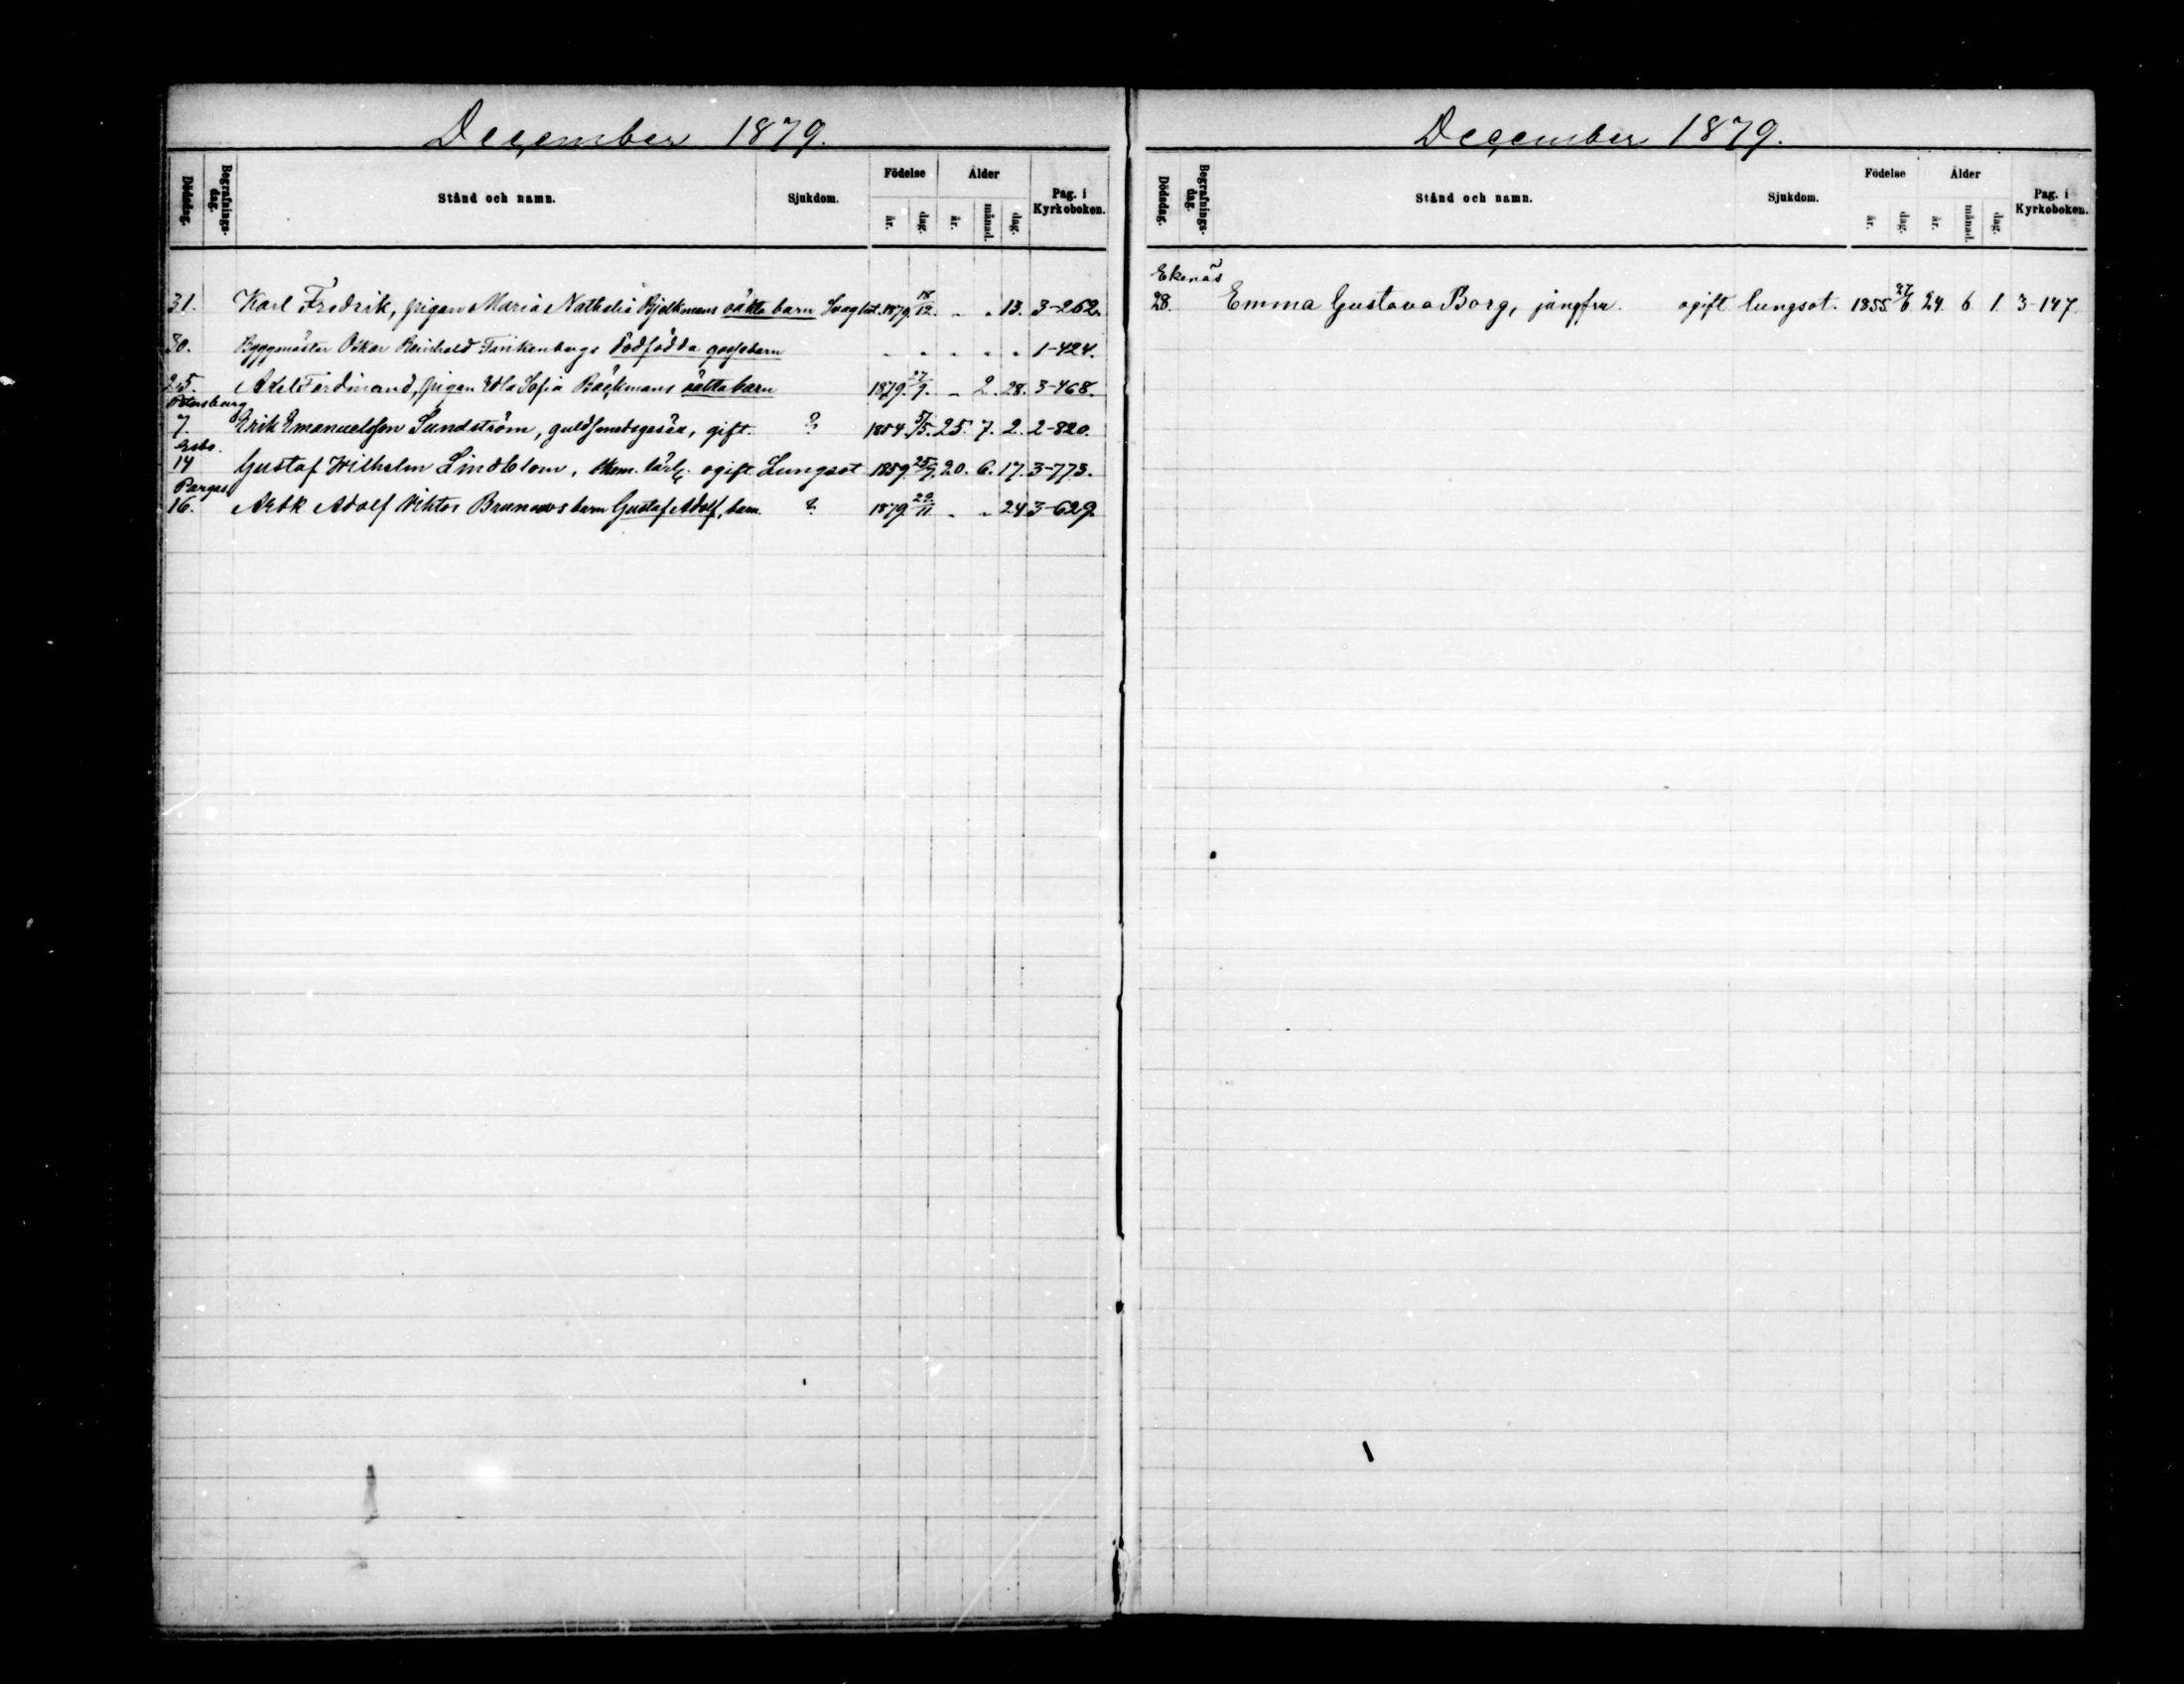 December 1879.
Dödsdag. Begrafnings-dag. Stånd och namn. Sjukdom. Födelse år. dag. Ålder år. månad. dag. Pag. i Kyrkoboken.
31. Karl Fredrik, pigan Maria Nathalia Bjelkmans oäkta barn Svaghet. 1879. 18/12. - - 13. 3-262.
30. Byggmästar Oskar Reinhold Finkenbergs dödfödda gossebarn - - - - - 1-424.
25. Axel Ferdinand, pigan Edla Sofia Bäckmans oäkta barn 1879. 27/9. - 2. 28. 3-468.
Petersburg
7. Erik Emanuelsson Sundström, guldsmedsgesäll, gift. ? 1854. 5/5. 25. 7. 2. 2-820.
Esbo.
14 Gustaf Wilhelm Lindblom, ogift Lungsot 1859. 20. 6. 17. 3-773.
Pargas
16. Arbk Adolf Viktor Brunows barn Gustaf Adolf, barn. ? 1879. - - 24. 3-629.
December 1879.
Dödsdag. Begrafnings-dag. Stånd och namn. Sjukdom. Födelse år. dag. Ålder år. månad. dag. Pag. i Kyrkoboken.
Ekenäs
28. Emma Gustava Borg, jungfru. ogift lungsot. 1855. 27/6 24. 6 1. 3-147.